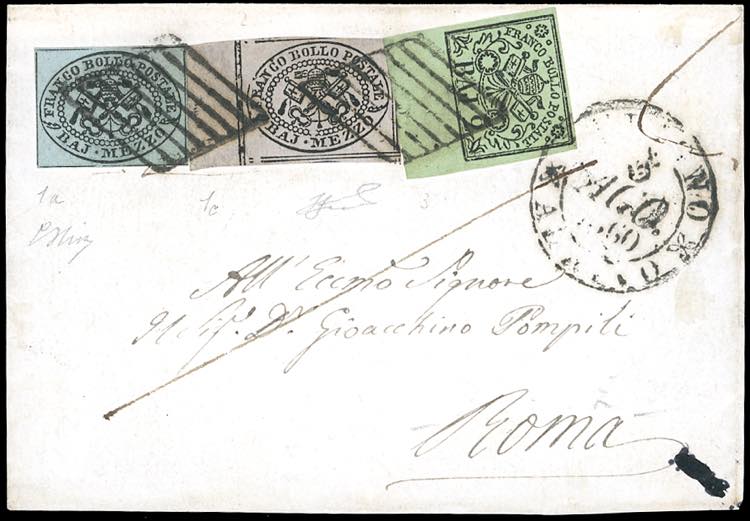 FRANCO BOLLO POSTALE
BAJ. MEZZO
FRANCO BOLLO POSTALE
BAJ. MEZZO
FRANCO BOLLO POSTALE
BAJ 2
1a
1c
3
AGO
All' Eccmo Signore
Gioacchino Pompili
Roma